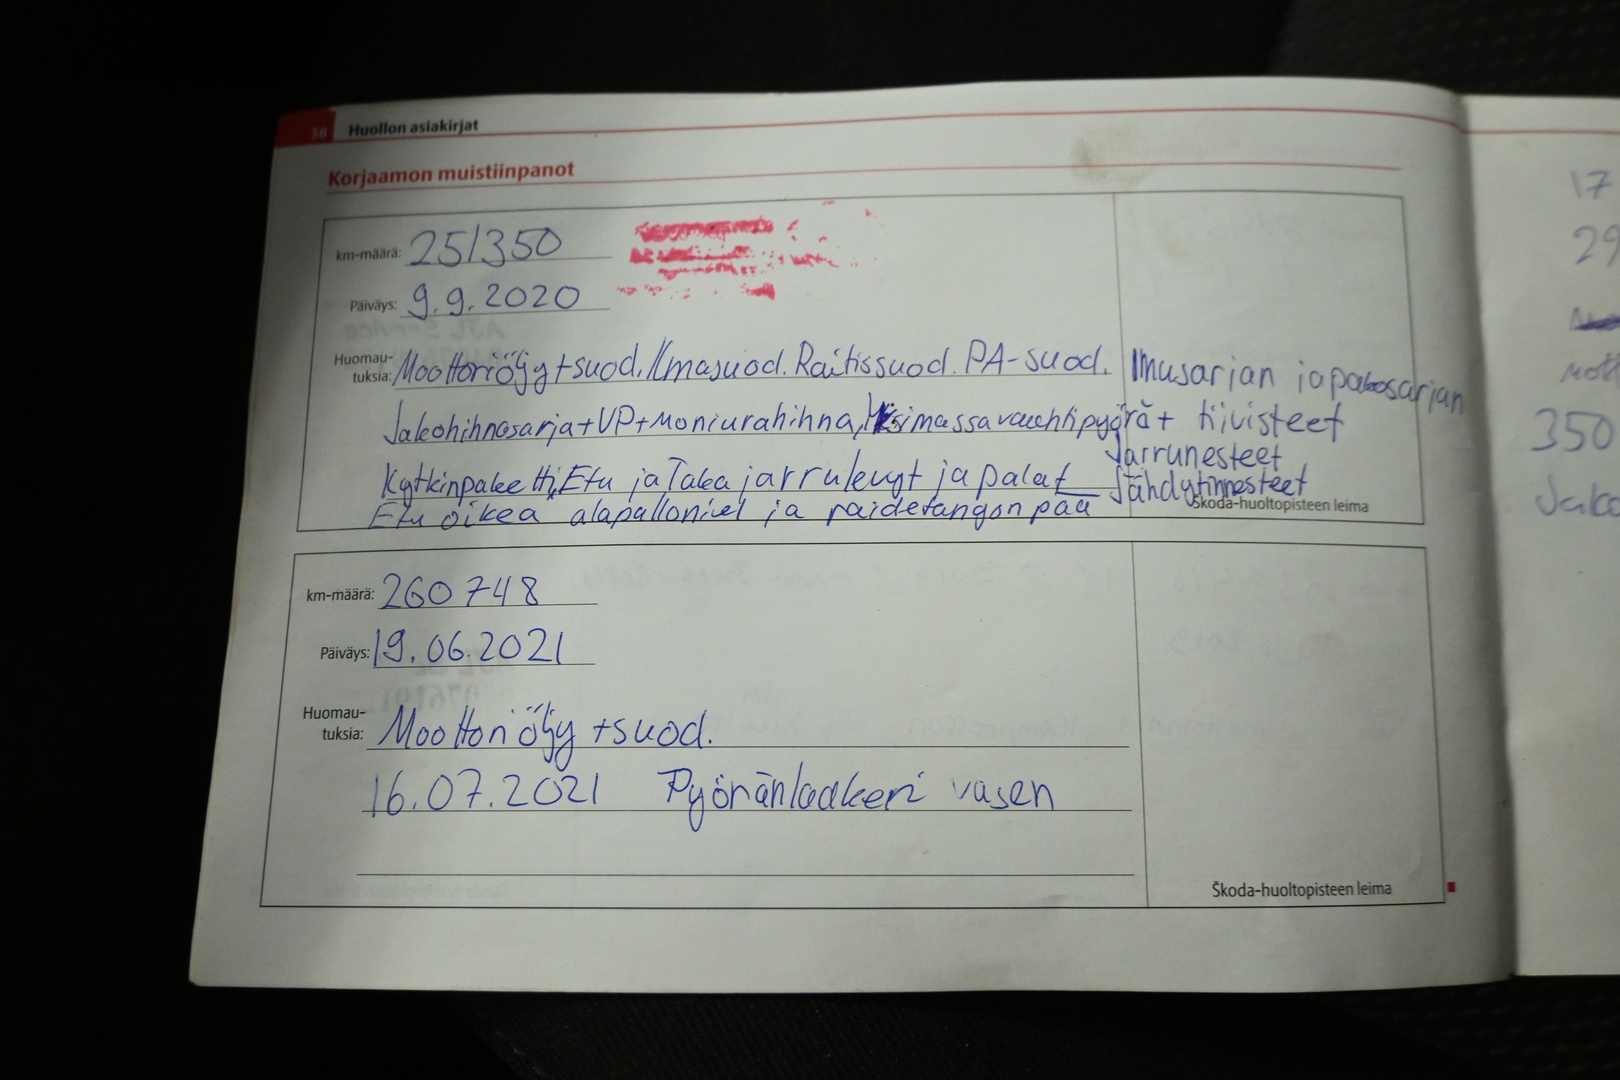 38 Huollon asiakirjat
Korjaamon muistiinpanot
km-määrä: 251350
Päiväys: 9.9.2020
Huomau-
tuksia: Moottoriöljy+suod. Ilmasuod. Raitissuod. PA-suod. Imusarjan ja pakosarjan
Jakohihnasarja+VP+Moniurahihna, massavauhtipyörä+ tiivisteet
Jarrunesteet
Kytkinpaketti, Etu ja Taka jarrulevyt ja palat Jähdytinnesteet
Etu oikea alapallonivel ja raidetangonpää
Škoda-huoltopisteen leima
km-määrä: 260748
Päiväys: 19.06.2021
Huomau-
tuksia: Moottoriöljy +suod.
16.07.2021 Pyöränlaakeri vasen
Škoda-huoltopisteen leima
17
29
350